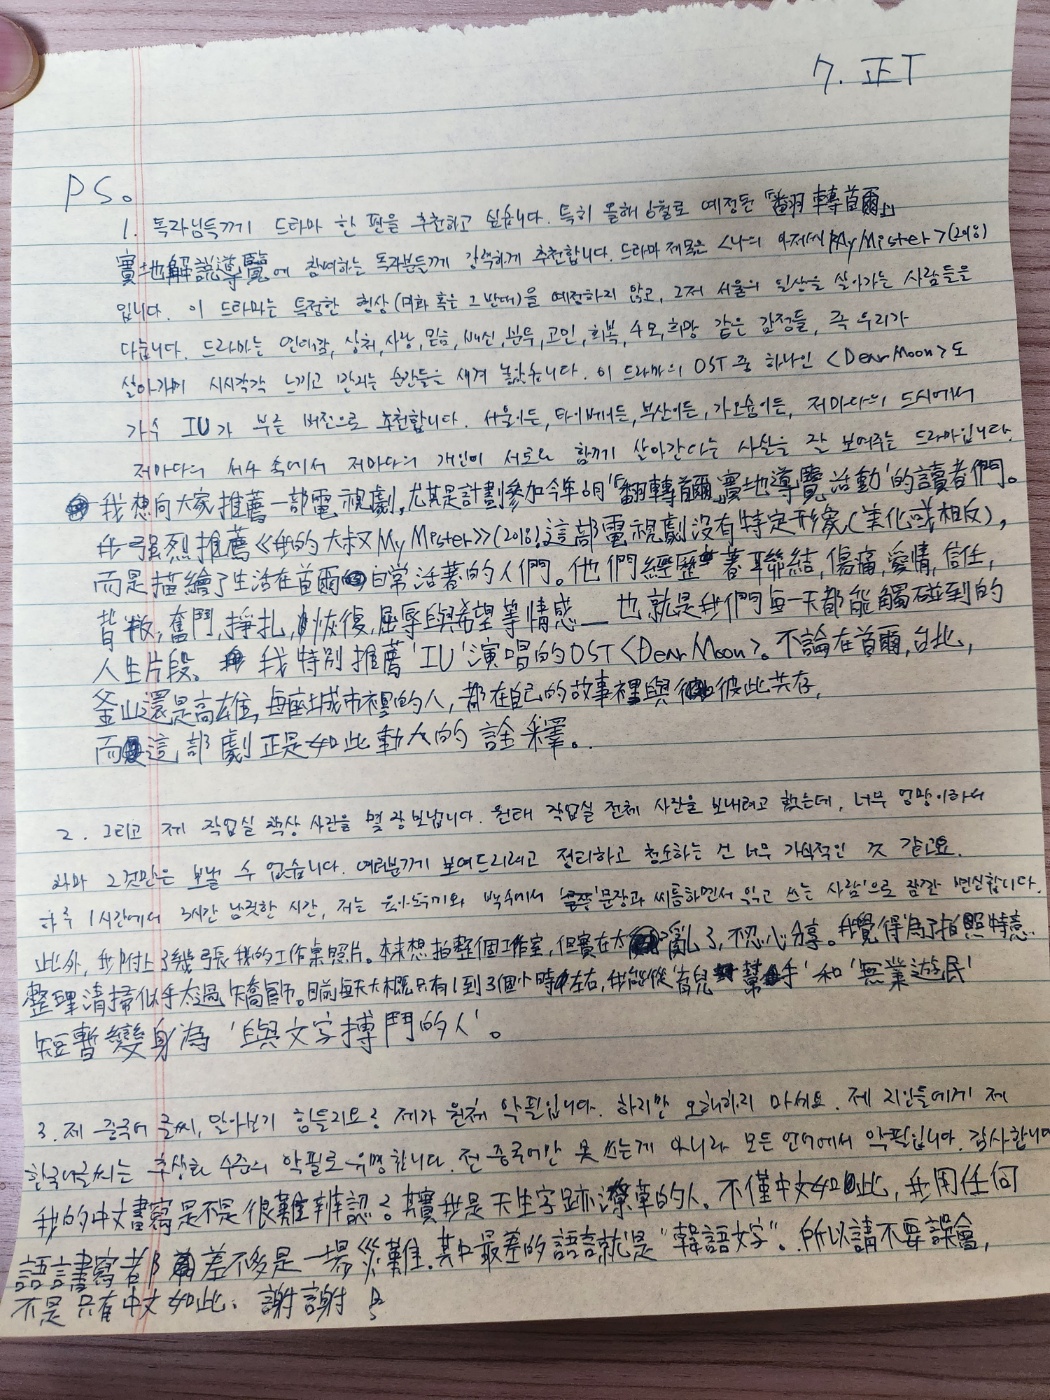 7. 正T
PS。
1. 독자님들께 드라마 한 편을 추천하고 싶습니다. 특히 올해 6월로 예정된 「翻轉首爾」
實地解說導覽에 참여하는 독자분들께 강력하게 추천합니다. 드라마 제목은 <나의 아저씨 My Mister>(2018)
입니다. 이 드라마는 특정한 형상(미화 혹은 그 반대)을 예정하지 않고, 그저 서울의 일상을 살아가는 사람들을
다룹니다. 드라마는 연대감, 상처, 사랑, 믿음, 배신, 분투, 고민, 회복, 수모, 희망 같은 감정들, 즉 우리가
살아가며 시시각각 느끼고 만나는 순간들을 새겨 놓았습니다. 이 드라마의 OST 중 하나인 <Dear Moon>도
가수 IU가 부른 버전으로 추천합니다. 서울이든, 타이베이든, 부산이든, 가오슝이든, 저마다의 도시에서
저마다의 서사 속에서 저마다의 개인이 서로와 함께 살아간다는 사실을 잘 보여주는 드라마입니다.
我想向大家推薦一部電視劇, 尤其是計劃參加今年6月「翻轉首爾」實地導覽活動'的讀者們。
我强烈推薦《我的大叔My Mister》(2018). 這部電視劇沒有特定形象(美化或相反),
而是描繪了生活在首爾日常活著的人們。他們經歷著聯結, 傷痛, 愛情, 信任,
背叛, 奮鬥, 掙扎, 恢復, 屈辱與希望等情感__也就是我們每一天都能觸碰到的
人生片段。我特別推薦 'IU' 演唱的OST <Dear Moon>。不論在首爾, 台北,
釜山還是高雄, 每座城市裡的人, 都在自己的故事裡與彼此共存,
而這部劇正是如此動人的詮釋。
2. 그리고 제 작업실 책상 사진을 몇 장 보냅니다. 원래 작업실 전체 사진을 보내려고 했는데, 너무 엉망이라서
차마 그것만은 보낼 수 없습니다. 여러분께 보여드리려고 정리하고 청소하는 건 너무 가식적인 것 같고요.
하루 1시간에서 3시간 남짓한 시간, 저는 육아도우미와 백수에서 '문장과 씨름하면서 읽고 쓰는 사람'으로 잠깐 변신합니다.
此外, 我附上3幾張我的工作桌照片。本來想拍整個工作室, 但實在太亂了, 不忍心分享。我覺得為了拍照特意
整理清掃似乎太過矯飾。目前每天大概只有1到3個小時左右, 我能從'育兒幫手' 和 '無業遊民'
短暫變身為 '與文字搏鬥的人'。
3. 제 중국어 글씨, 알아보기 힘들지요? 제가 원체 악필입니다. 하지만 오해하지 마세요. 제 지인들에게 제
한국어글씨는 추상화 수준의 악필로 유명합니다. 전 중국어만 못 쓰는게 아니라 모든 언어에서 악필입니다. 감사합니다
我的中文書寫是不是很難辨認? 其實我是天生字跡潦草的人。不僅中文如此, 我用任何
語言書寫都差不多是一場災難. 其中最差的語言就是 "韓語文字"。所以請不要誤會,
不是只有中文如此. 謝謝